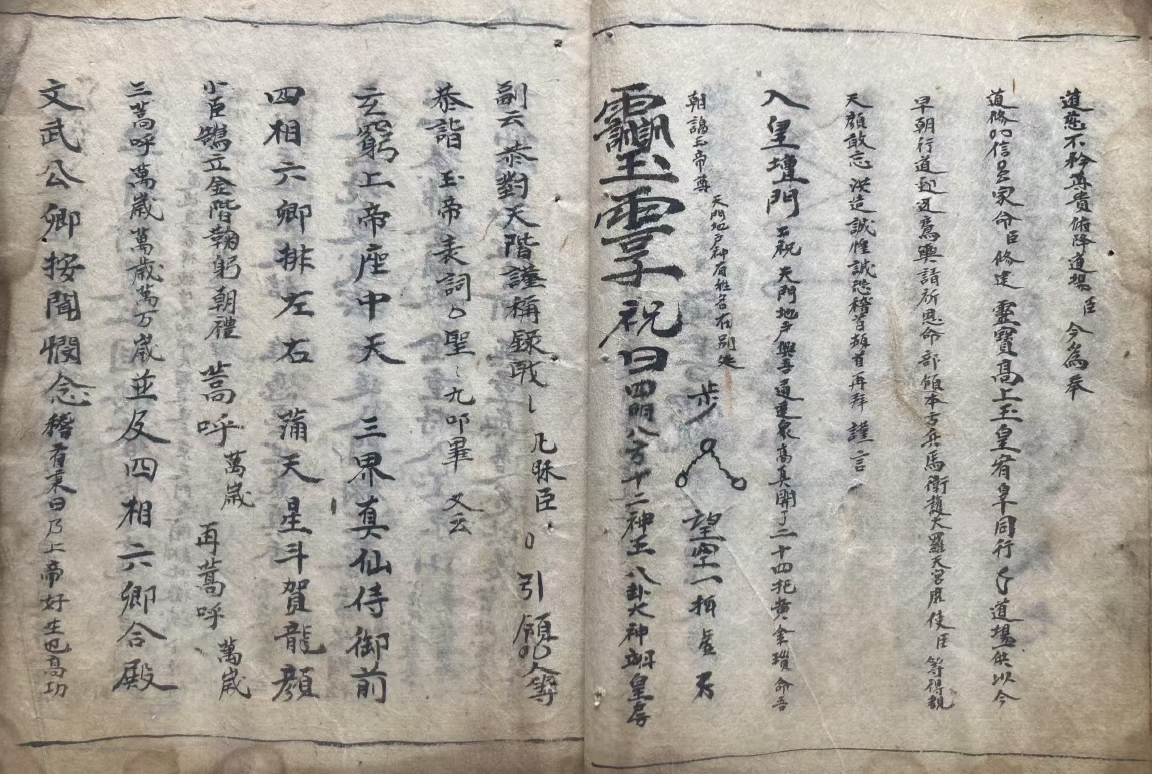 道慈不矜尊貴俯降道場臣 今為奉
道修信家命臣修建 靈寶高上玉皇宥辠同行道場供以今
早朝行道 意興請祈恩命部領本 兵馬衛護大羅天宮 使臣 等得覩
天顏敢忘 洪造誠惟誠恐稽首頓首再拜 謹言
入皇壇門 呂祝 天門地戶與吾通達 高真開了二十四 黃金 命吾
朝謁玉帝尊 天門地戶神君姓名在別
步 望空一 虛
玉 祝曰四明八方十二神王八卦大神 皇房
副云 恭對天階謹稱錄職 凡昧臣 引領 人等
恭詣 玉帝表詞 聖 九叩畢 又云
玄窮上帝座中天 三界真仙侍御前
四相六卿排左右 蒲天星斗賀龍顏
小臣鵠立金階鞠躬朝禮 蒿呼 萬歲 再蒿呼 萬歲
三蒿呼萬歲萬歲萬万歲並及四相六卿合殿
文武公卿按聞憫念稽首秉曰乃上帝好生也高功